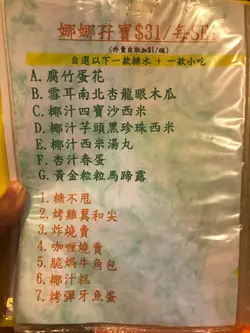 娜娜孖寶$31/每SET
(外賣自取加$1/碗)
自選以下一款糖水 + 一款小吃
A.腐竹蛋花
B.雪耳南北杏龍眼木瓜
C.椰汁四寶沙西米
D.椰汁芋頭黑珍珠西米
E.椰汁西米湯丸
F.杏汁春蛋
G.黃金粒粒馬蹄露
1.糖不甩
2.烤雞翼和尖
3.炸燒賣
4.咖喱燒賣
5.脆焗牛角包
6.椰汁糕
7.烤彈牙魚蛋